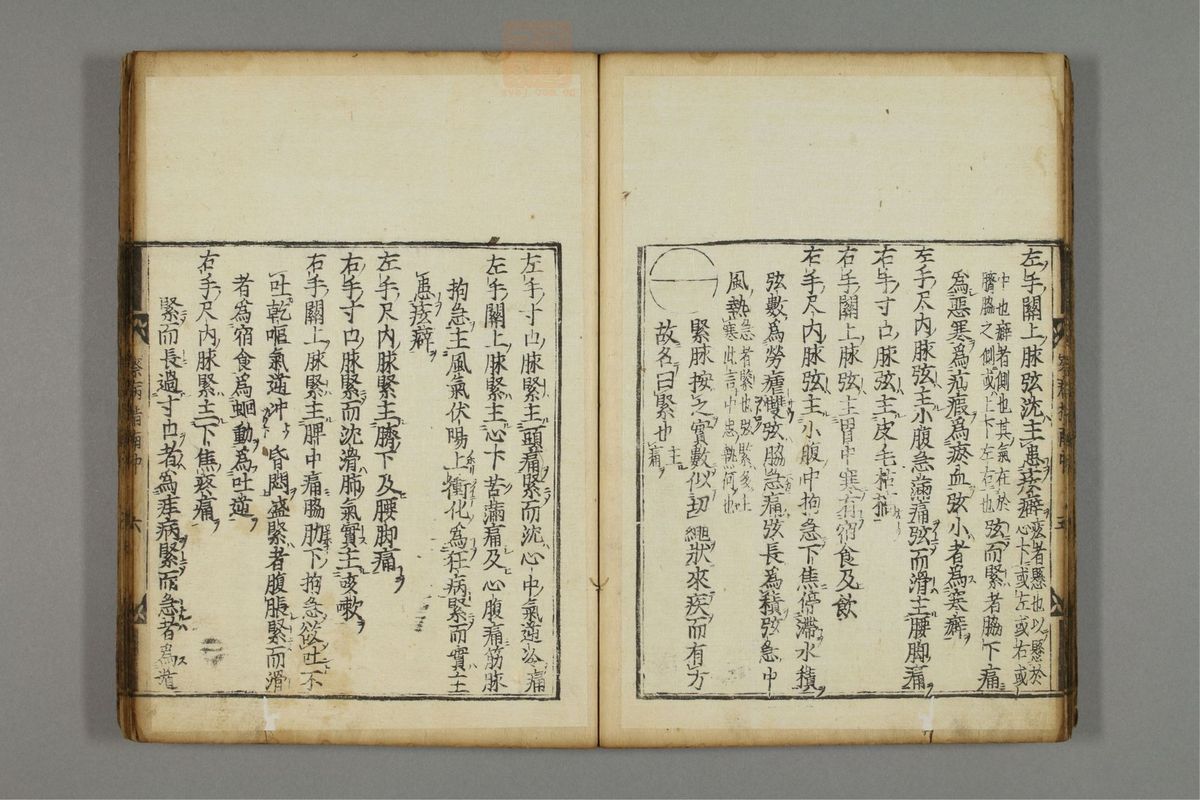 左手關上脉弦沈主患痃癖痃者懸也以懸於心下或左或右或
中也癖者側也其氣在於臍脇之側或上下左右也弦而緊者脇下痛
爲惡寒爲疝瘕爲瘀血弦小者爲寒癖
左手尺內脉弦主小腹急滿痛弦而滑主腰脚痛
右手寸口脉弦主皮毛枯槁
右手關上脉弦主胃中寒有宿食及飲
右手尺內脉弦主小腹中拘急下焦停滯水積
弦數爲勞瘧雙弦脇急痛弦長爲積弦急中
風熱急者緊也弦緊多主寒此言中患熱何也
緊脉按之實數似切繩狀來疾而有力
故名曰緊也主痛
左手寸口脉緊主頭痛緊而沈心中氣逆冷痛
左手關上脉緊主心下苦滿痛及心腹痛筋脉
拘急主風氣伏陽上衝化爲狂病緊而實主
患痃癖
左手尺內脉緊主臍下及腰脚痛
右手寸口脉緊而沈滑肺氣實主咳嗽
右手關上脉緊主脾中痛脇肋下拘急欲吐不
吐乾嘔氣逆冲昏悶盛緊者腹脹緊而滑
者爲宿食爲蛔動爲吐逆
右手尺內脉緊主下焦疼痛
緊而長過寸口者爲疰病緊而急者爲遁
察病指南中 六